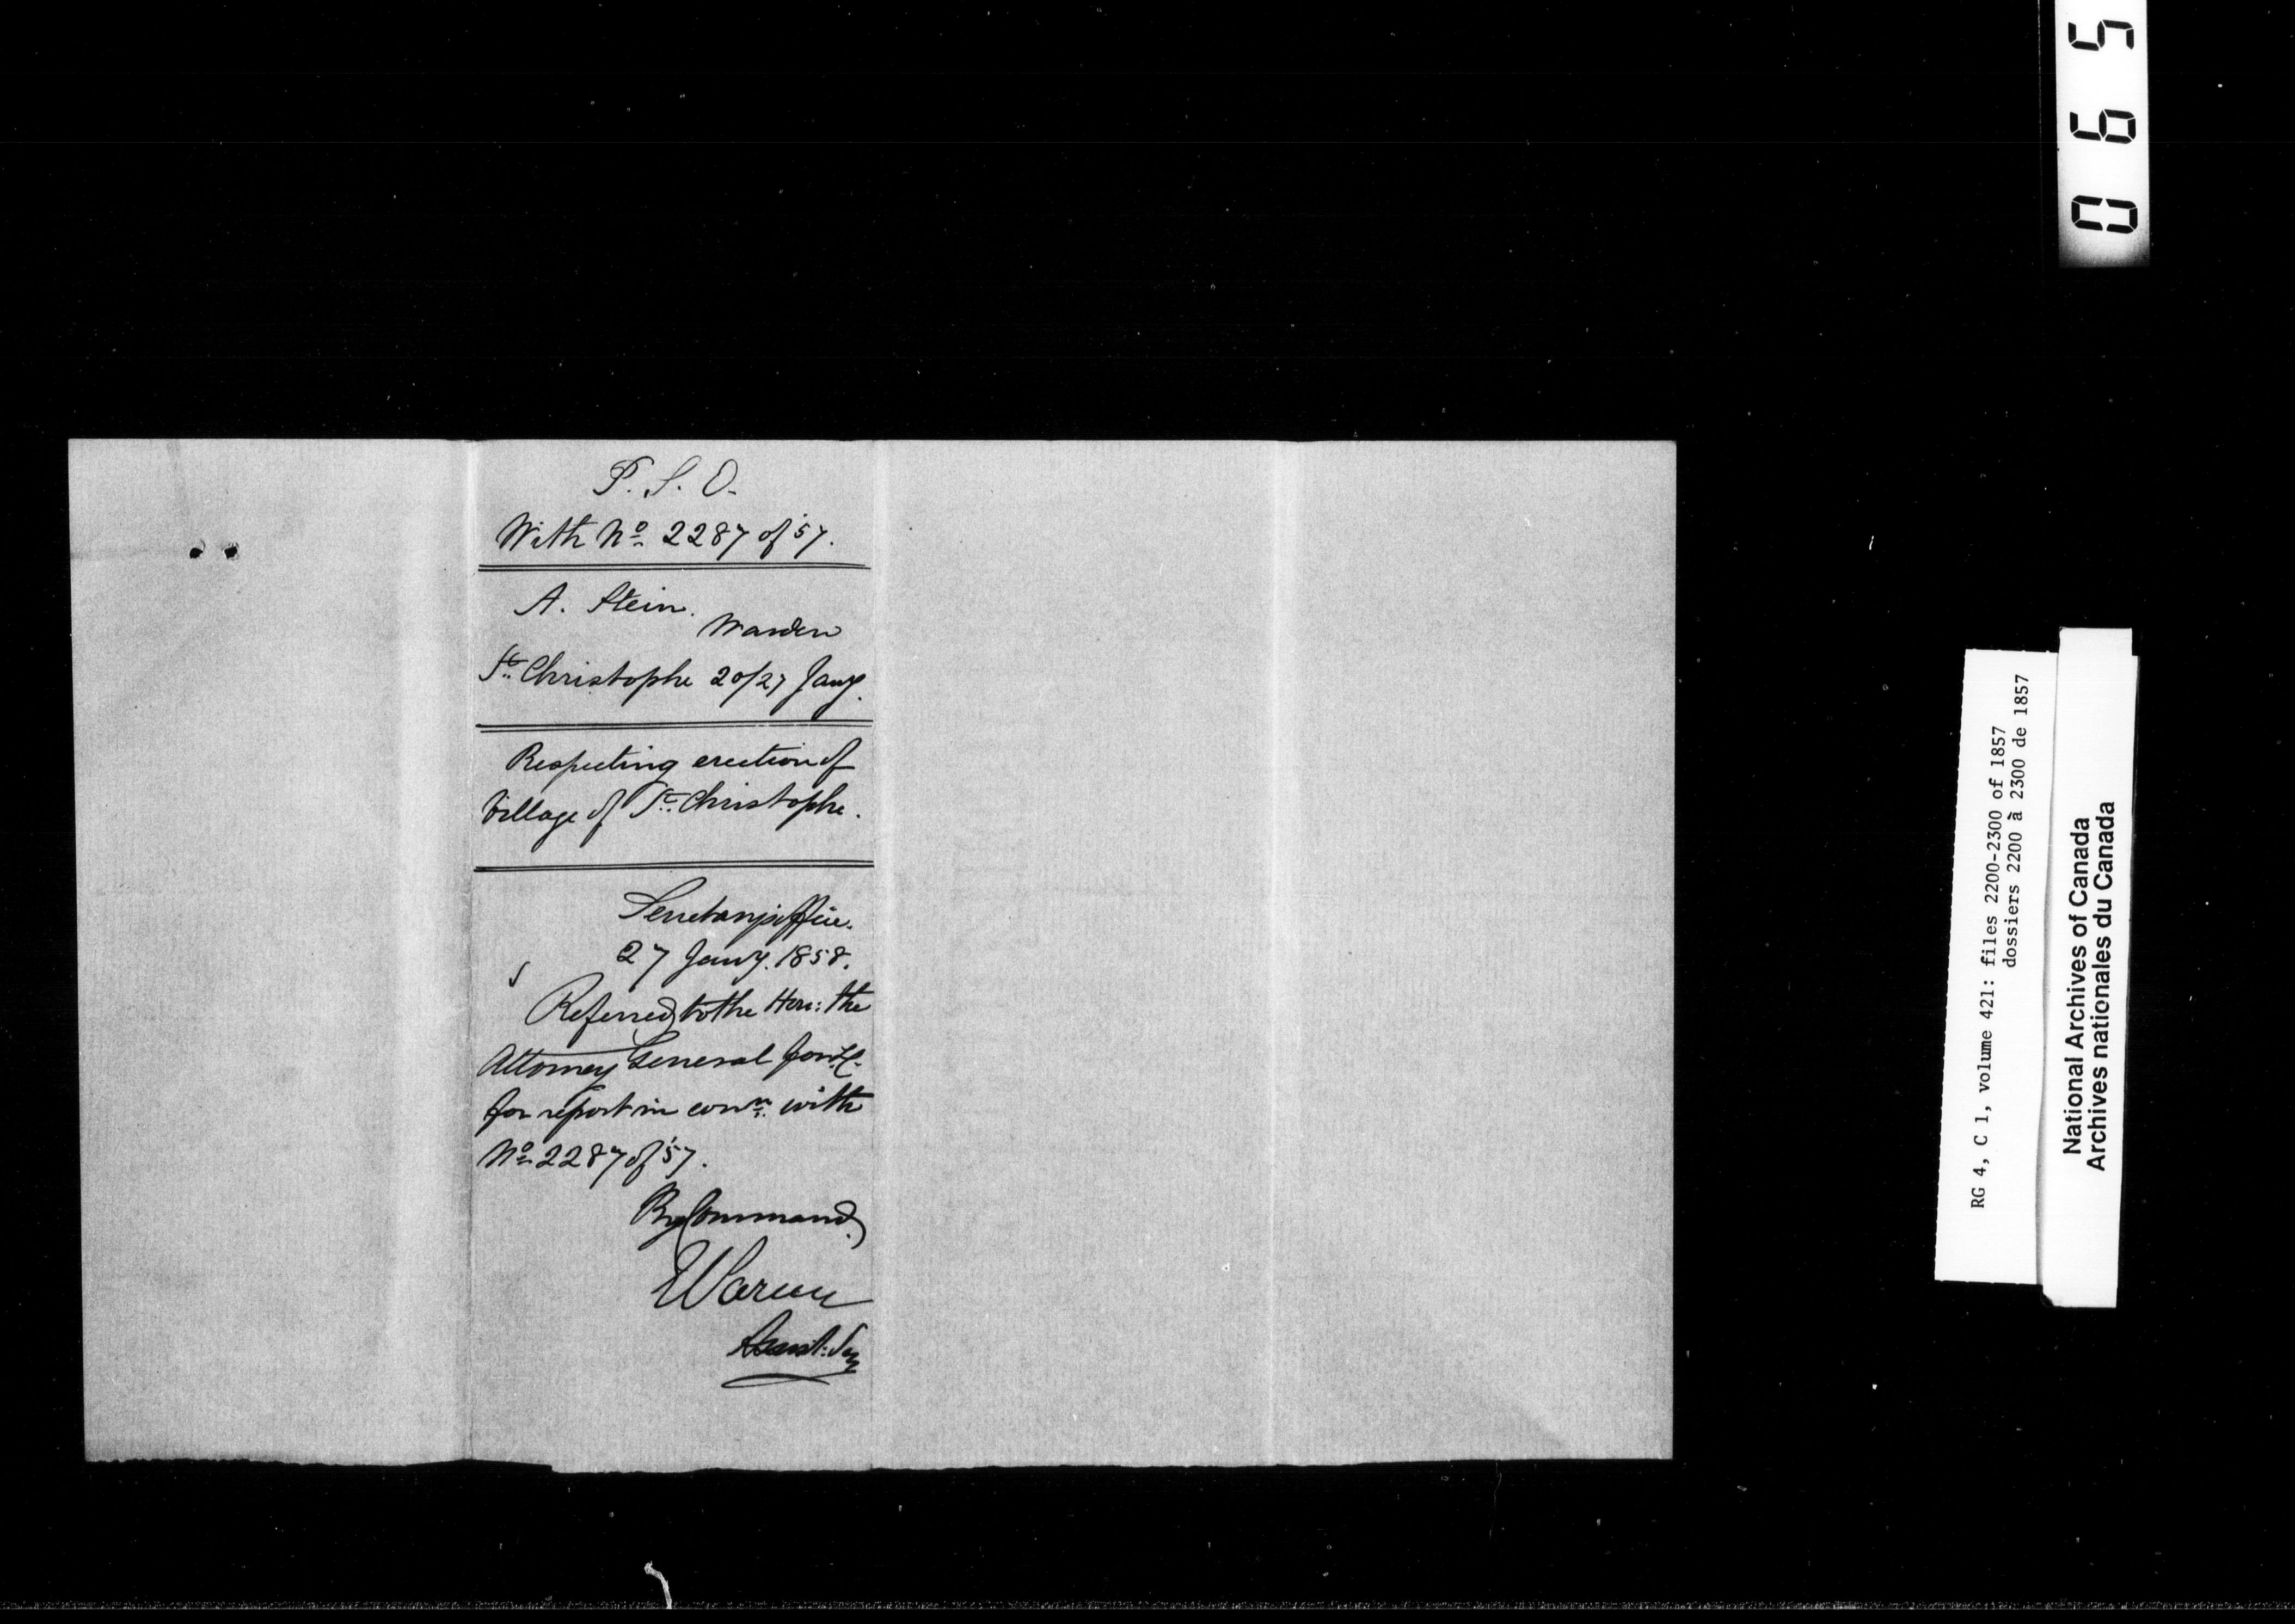 P. S. O.
With No. 2287 of '57.
A. Stein.
Warden
St. Christophe 20/27 Jany.
Respecting erection of
Village of St. Christophe.
Secretary's Office.
27 Jany. 1858.
Referred to the Hon: the
Attorney General for L.C.
for report in conn. with
No. 2287 of '57.
By Command,
Assist: Secy
0695
RG 4, C 1, volume 421: files 2200-2300 of 1857
dossiers 2200 à 2300 de 1857
National Archives of Canada
Archives nationales du Canada